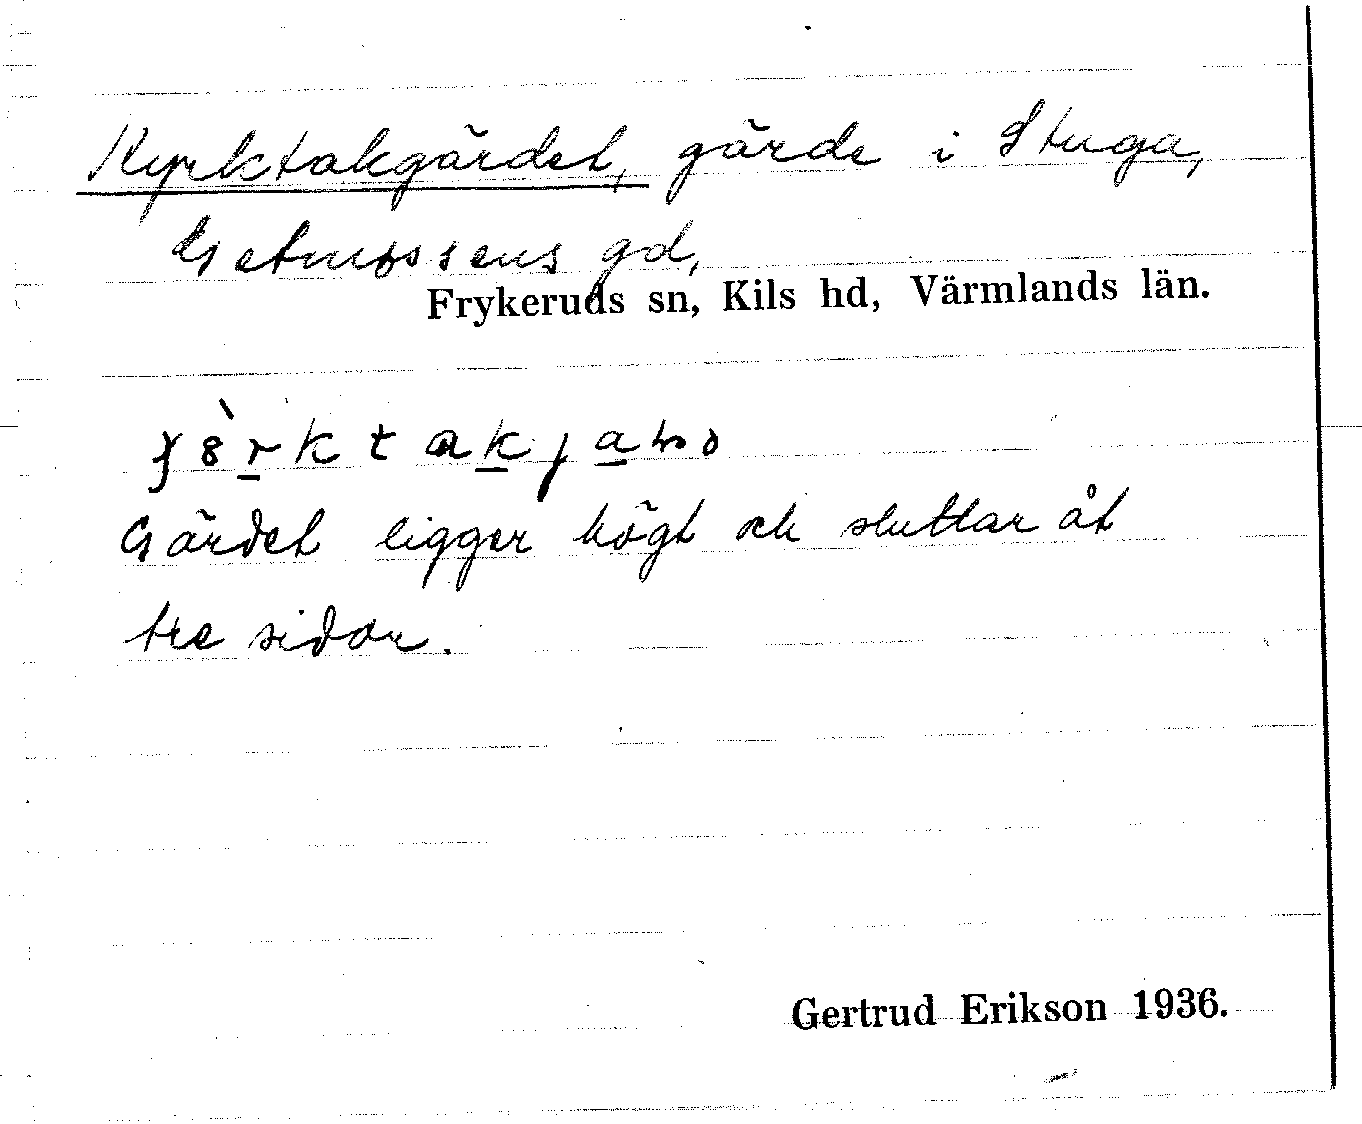 Kyrktakgärdet, gärde i Stuga,
Getmossens gd,
Frykeruds sn, Kils hd, Värmlands län.
Gärdet ligger högt och sluttar åt
tre sidor.
Gertrud Erikson 1936.